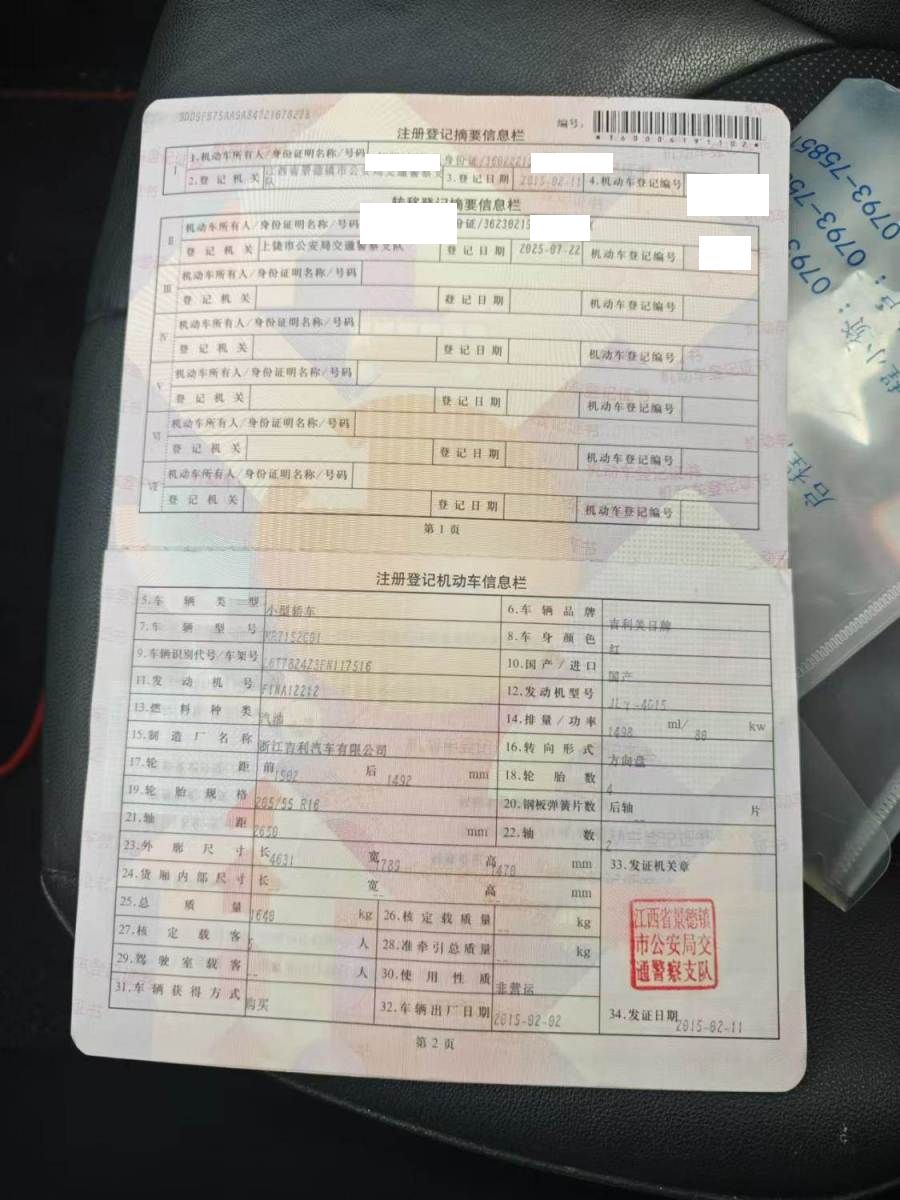 编号：
注册登记摘要信息栏
I 1.机动车所有人/身份证明名称/号码 身份证/
2.登记机关 江西省景德镇市公安局交通警察支队 3.登记日期 2015-02-11 4.机动车登记编号
转移登记摘要信息栏
II 机动车所有人/身份证明名称/号码
登记机关 上饶市公安局交通警察支队 登记日期 2025-07-22 机动车登记编号
III 机动车所有人/身份证明名称/号码
登记机关 登记日期 机动车登记编号
IV 机动车所有人/身份证明名称/号码
登记机关 登记日期 机动车登记编号
V 机动车所有人/身份证明名称/号码
登记机关 登记日期 机动车登记编号
VI 机动车所有人/身份证明名称/号码
登记机关 登记日期 机动车登记编号
VII 机动车所有人/身份证明名称/号码
登记机关 登记日期 机动车登记编号
第1页
注册登记机动车信息栏
5.车辆类型 小型轿车 6.车辆品牌 吉利美日牌
7.车辆型号 8.车身颜色 红
9.车辆识别代号/车架号 10.国产/进口 国产
11.发动机号 F1NA12212 12.发动机型号
13.燃料种类 汽油 14.排量/功率 1498 ml/ 80 kw
15.制造厂名称 浙江吉利汽车有限公司 16.转向形式 方向盘
17.轮距 前 1502 后 1492 mm 18.轮胎数 4
19.轮胎规格 205/55 R16 20.钢板弹簧片数 后轴 -- 片
21.轴距 2650 mm 22.轴数 2
23.外廓尺寸 长 4631 宽 1789 高 1470 mm 33.发证机关章
24.货厢内部尺寸 长 宽 高 mm
25.总质量 1640 kg 26.核定载质量 -- kg
27.核定载客 人 28.准牵引总质量 -- kg
29.驾驶室载客 -- 人 30.使用性质 非营运
31.车辆获得方式 购买 32.车辆出厂日期 2015-02-02 34.发证日期 2015-02-11
江西省景德镇
市公安局交
通警察支队
第2页